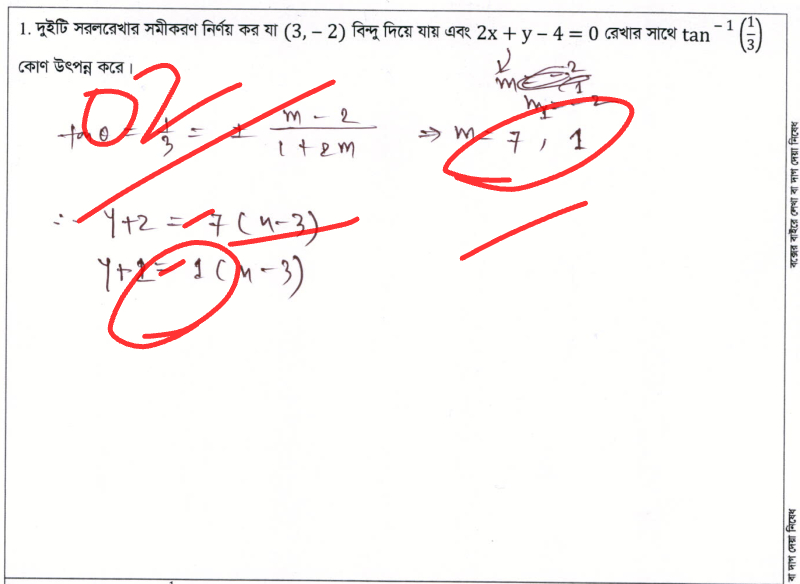 1. দুইটি সরলরেখার সমীকরণ নির্ণয় কর যা (3, – 2) বিন্দু দিয়ে যায় এবং 2x + y – 4 = 0 রেখার সাথে tan⁻¹ (1/3)
কোণ উৎপন্ন করে।
m₁ = – 2
tan θ = 1/3 = ± (m – 2)/(1 + 2m) ⇒ m = 7 , 1
∴ y+2 = 7 (x–3)
1 (x–3)
বক্সের বাইরে লেখা বা দাগ দেয়া নিষেধ
বা দাগ দেয়া নিষেধ